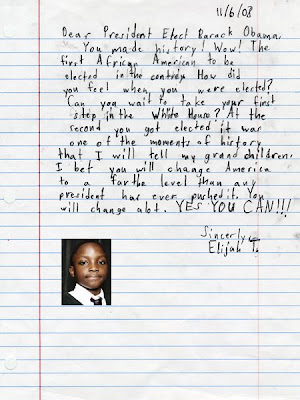 11/6/08
Dear President Elect Barack Obama,
You made history! Wow! The
first African American to be
elected in the contry. How did
you feel when you were elected?
Can you wait to take your first
step in the White House? At the
second you got elected it was
one of the moments of history
that I will tell my grand children.
I bet you will change America
to a farthe level than any
president has ever pushed it. You
will change alot. YES YOU CAN!!!
Sincerly,
Elijah T.